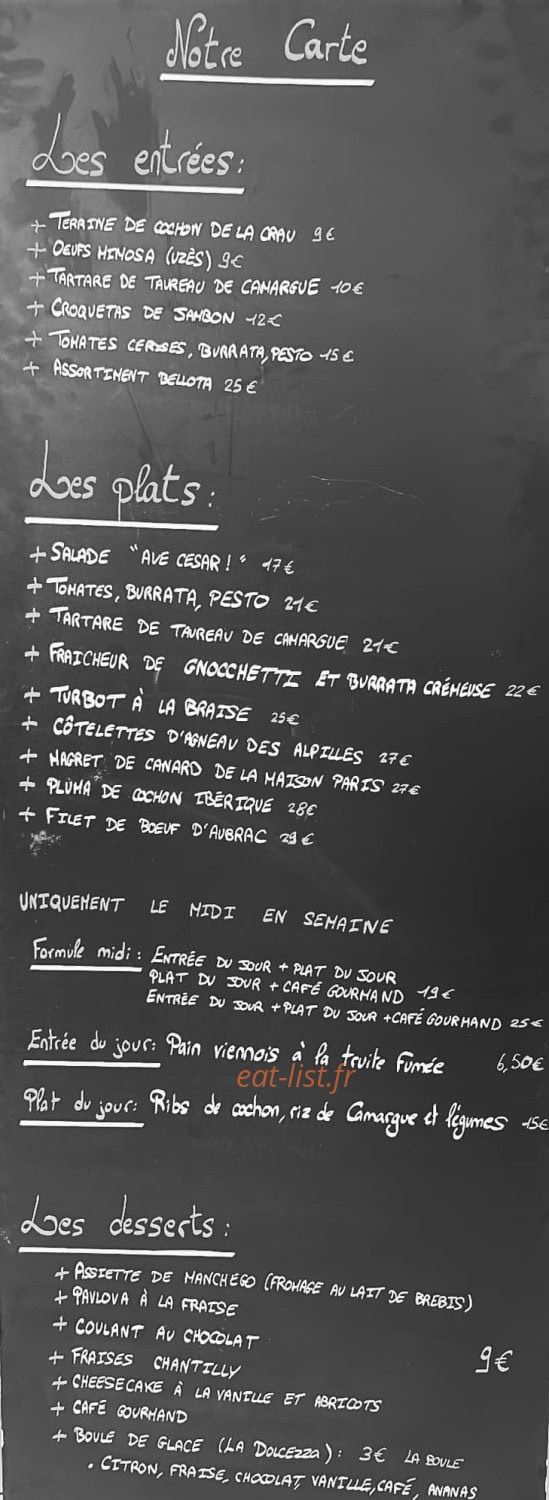 Notre Carte
Les entrées:
+ TERRINE DE COCHON DE LA CRAU 9€
+ OEUFS MIMOSA (UZÈS) 9€
+ TARTARE DE TAUREAU DE CAMARGUE 10€
+ CROQUETAS DE JAMBON 12€
+ TOMATES CERISES, BURRATA, PESTO 15€
+ ASSORTIMENT BELLOTA 25€
Les plats:
+ SALADE "AVE CESAR!" 17€
+ TOMATES, BURRATA, PESTO 21€
+ TARTARE DE TAUREAU DE CAMARGUE 21€
+ FRAICHEUR DE GNOCCHETTI ET BURRATA CRÉMEUSE 22€
+ TURBOT À LA BRAISE 25€
+ CÔTELETTES D'AGNEAU DES ALPILLES 27€
+ MAGRET DE CANARD DE LA MAISON PARIS 27€
+ PLUMA DE COCHON IBÉRIQUE 28€
+ FILET DE BOEUF D'AUBRAC 29€
UNIQUEMENT LE MIDI EN SEMAINE
Formule midi: ENTRÉE DU JOUR + PLAT DU JOUR
PLAT DU JOUR + CAFÉ GOURMAND 19€
ENTRÉE DU JOUR + PLAT DU JOUR + CAFÉ GOURMAND 25€
Entrée du jour: Pain viennois à la truite fumée 6,50€
eat-list.fr
Plat du jour: Ribs de cochon, riz de Camargue et légumes 15€
Les desserts:
+ ASSIETTE DE MANCHEGO (FROMAGE AU LAIT DE BREBIS)
+ PAVLOVA À LA FRAISE
+ COULANT AU CHOCOLAT
+ FRAISES CHANTILLY 9€
+ CHEESECAKE À LA VANILLE ET ABRICOTS
+ CAFÉ GOURMAND
+ BOULE DE GLACE (LA DOLCEZZA): 3€ LA BOULE
. CITRON, FRAISE, CHOCOLAT, VANILLE, CAFÉ, ANANAS